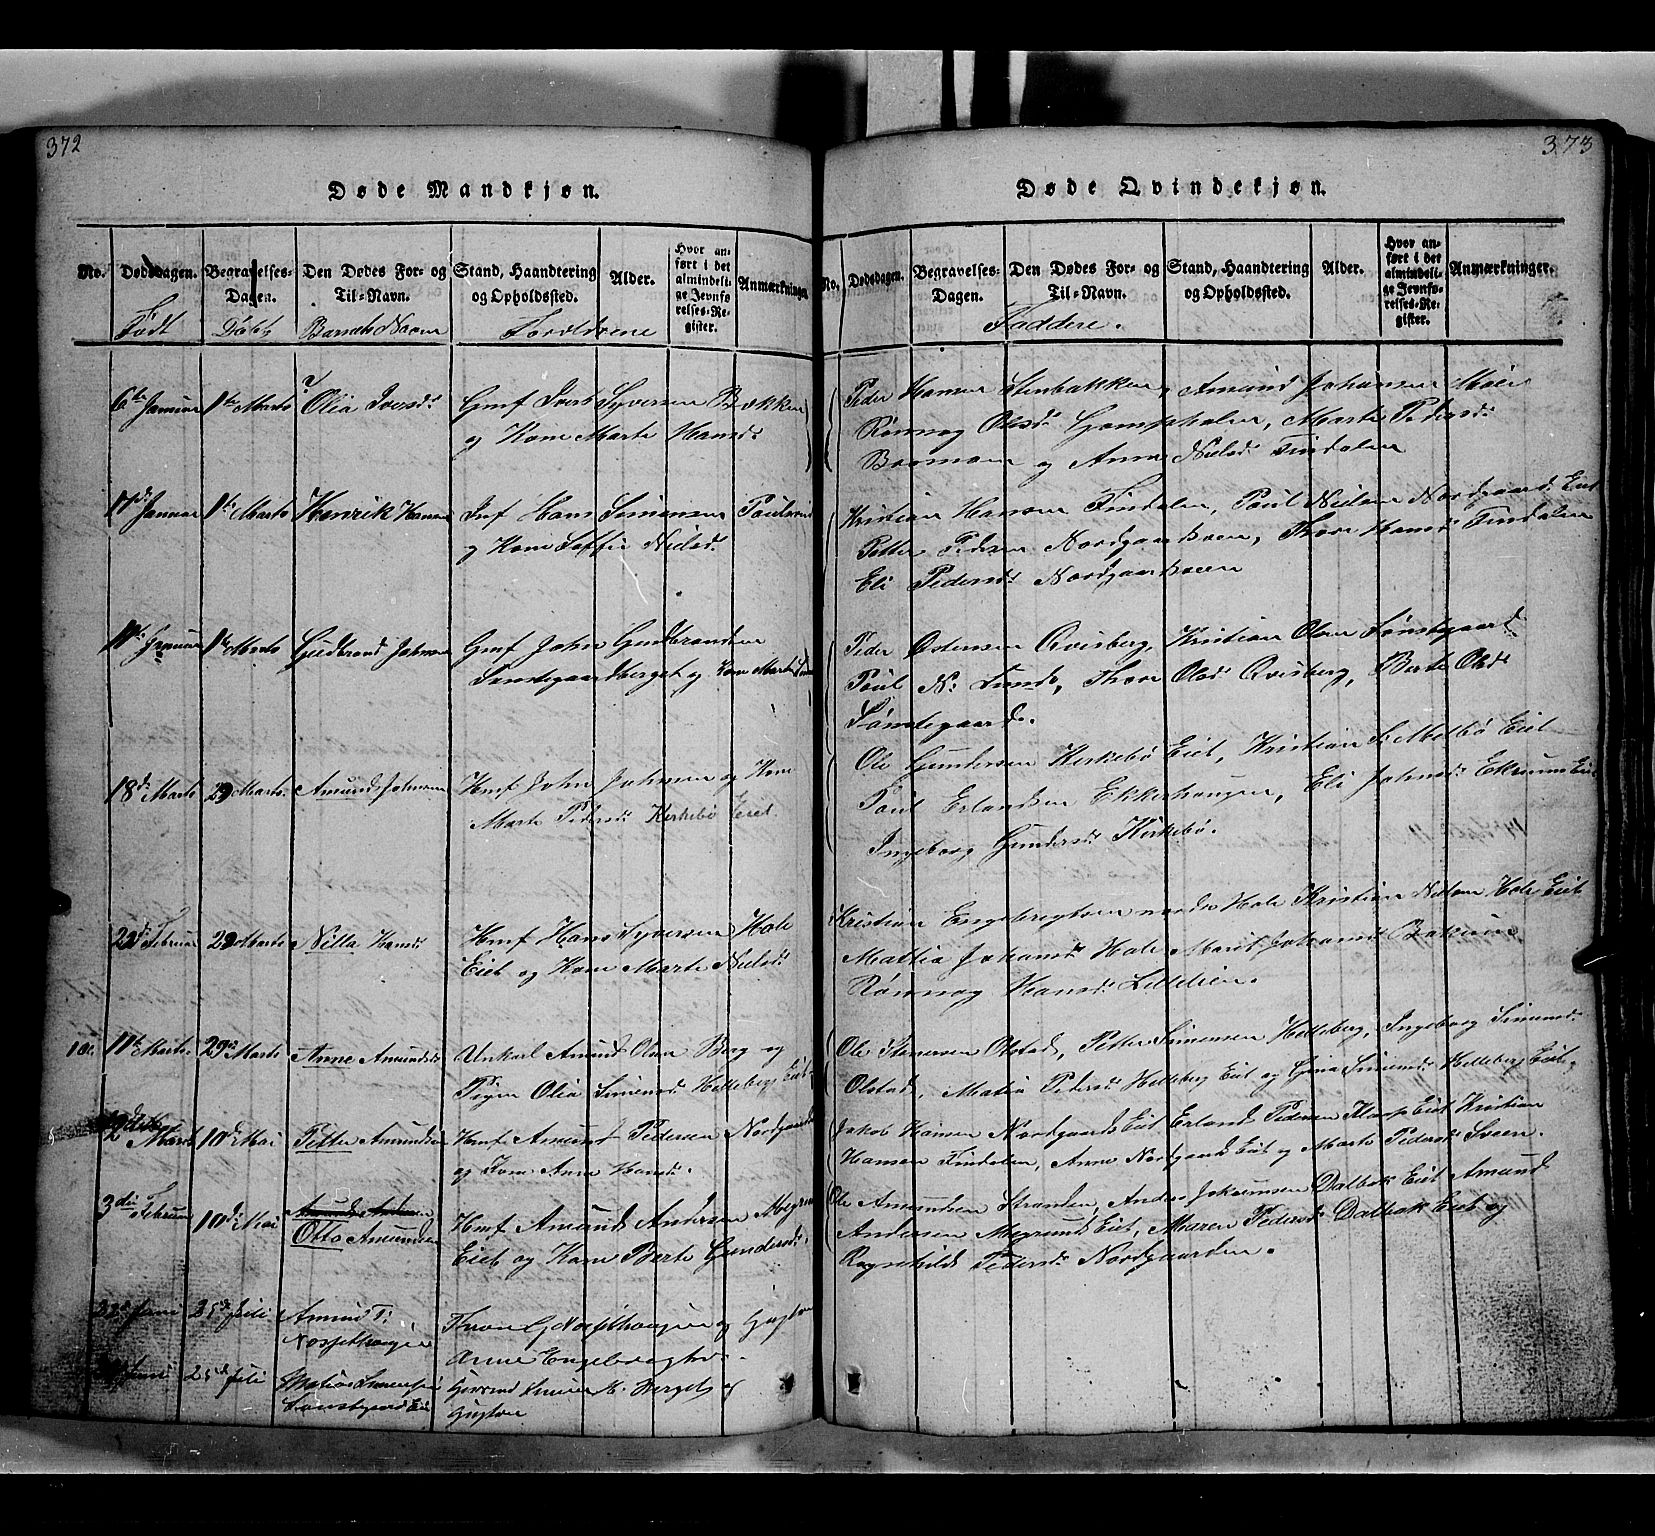 372
Døde Mandkjøn.
No. Dødsdagen. Begravelses-Dagen. Den Dødes For- og Til-Navn. Stand, Haandtering og Opholdssted. Alder. Hvor anført i det almindelige Jevnførelses-Register. Anmærkninger.
Født Døbt Barnets Navn Forældrene
6te Januar 1te Marts Olia Iversd: Gmf Iver Syversen Bækken
og Kone Marte Hansd:
17de Januar 1te Marts Henrik Hansen Inf Hans Simensen
og Kone Nielsd:
1te Marts Gudbrand Johnsen Gmf John Gudbrandsen
og Kone Marte
18de Marts 29 Marts Amund Johnsen Hmf John Johnsen og Kone
Marte Pedersd: Kirkebø Eiet
22de Februar 29 Marts Nilla Hansd: Hmf Hans Syversen Hole
Eiet og Kone Marte Nielsd:
11te Marts 29de Marts Anne Amundsd: Unkarl Amund Olsen Berg og
Pigen Olia Simensd: Helleberg Eiet
2de Marts 10de Mai Petter Amundsen Hmf Amund Pedersen Nordgaards
og Kone Anne Hansd:
3die Februar 10de Mai Otto Amundsen Hmf Amund Andersen Mogrund
Eiet og Kone Berte Gundersd:
22de Juni 25de Juli Amund T:
og Hustru
Anne Engebregtsd.
Juni 25de Juli Mathias
og
Hustru
373
Døde Qvindekjøn.
No. Dødsdagen. Begravelses-Dagen. Den Dødes For- og Til-Navn. Stand, Haandtering og Opholdssted. Alder. Hvor anført i det almindelige Jevnførelses-Register. Anmærkninger.
Faddere.
Peder Hansen Stenbakken, Amund Johansen Moen
Rønnog Olsd: Marte Pedersd:
og Anne Nielsd: Tindalen
Kristian Hansen Tindalen, Paul Nielsen Nordgaards Eiet
Petter Pedersen Nordgaardsveen, Thore Hansd: Tindalen
Eli Pedersd: Nordgaardsveen
Peder Ostensen Qvisberg, Kristian Olsen Tønstegaard
Paul N: Lunde, Thore Olsd: Qvisberg, Berte Olsd:
Tønstegaard.
Ole Gundersen Kirkebø Eiet, Kristian S: Melbø Eiet
Paul Erlandsen Ekkerhaugen, Eli Johnsd: Ekrum Eiet
Ingeborg Gundersd: Kirkebø.
Kristian Engebregtsen nordre Hole Kristian Nielsen Hole Eiet
Mathia Johansd: Hole Marit Johansd: Bakken
Rønnog Hansd: Lillelien.
Ole Stenersen Olstad, Petter Simensen Helleberg, Ingeborg Simensd:
Olstad, Mathia Pedersd: Helleberg Eiet og Gina Simensd: Helleberg Eiet.
Jakob Hansen Nordgaards Eiet Erland Pedersen Eiet Kristian
Hansen Tindalen, Anne Nordgaards Eiet og Marte Pedersd: Sveen.
Ole Amundsen Stranden, Anders Johannsen Dalbak Eiet Amund
Andersen Mogrunds Eiet, Maren Pedersd: Dalbak Eiet og
Ragnhild Pedersd: Nordgaarden.